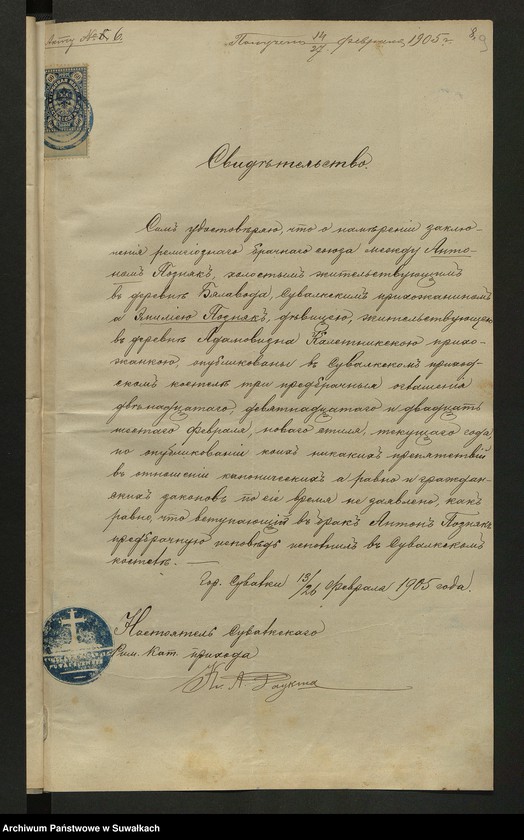 Акту № 6.
Получено 14/27 февраля 1905 г.
8.
9
Свидѣтельство.
Симъ удостовѣряю, что о намѣреніи заклю-
ченія религіознаго брачнаго союза между Анто-
номъ Познякъ, холостымъ жительствующимъ
въ деревнѣ Бялавода, Сувалкскимъ прихожаниномъ
а Позняк, дѣвицею, жительствующею
въ деревнѣ Адамовизна Калетникскою прихо-
жанкою, опубликованы въ Сувалкскомъ приход-
скомъ костелѣ три предбрачныя оглашенія
двѣнадцатаго, девятнадцатаго и двадцать
шестаго февраля, новаго стиля, текущаго года,
по опубликованіи коихъ никакихъ препятствій
въ отношеніи каноническихъ а равно и граждан-
скихъ законовъ по сіе время не заявлено, какъ
равно, что вступающій въ бракъ Антонъ Познякъ
предбрачную исповѣдь исполнилъ въ Сувалкскомъ
костелѣ.
Гор. Сувалки 13/26 февраля 1905 года.
Настоятель Сувалкскаго
Рим. Кат. прихода
Кс. А.
Archiwum Państwowe w Suwałkach